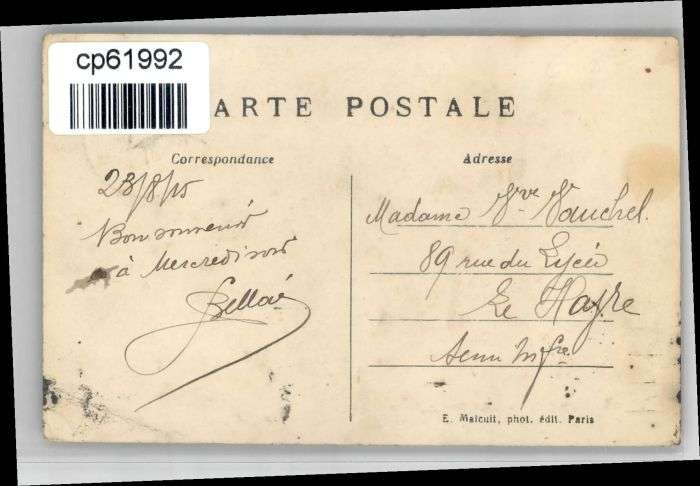 cp61992
ARTE POSTALE
Correspondance
Adresse
23/8/15
Bon souvenir
à Mercredi soir
Madame Vve Vauchel
89 rue du Lycée
Le Havre
Seine Infre
E. Malcuit, phot. édit. Paris